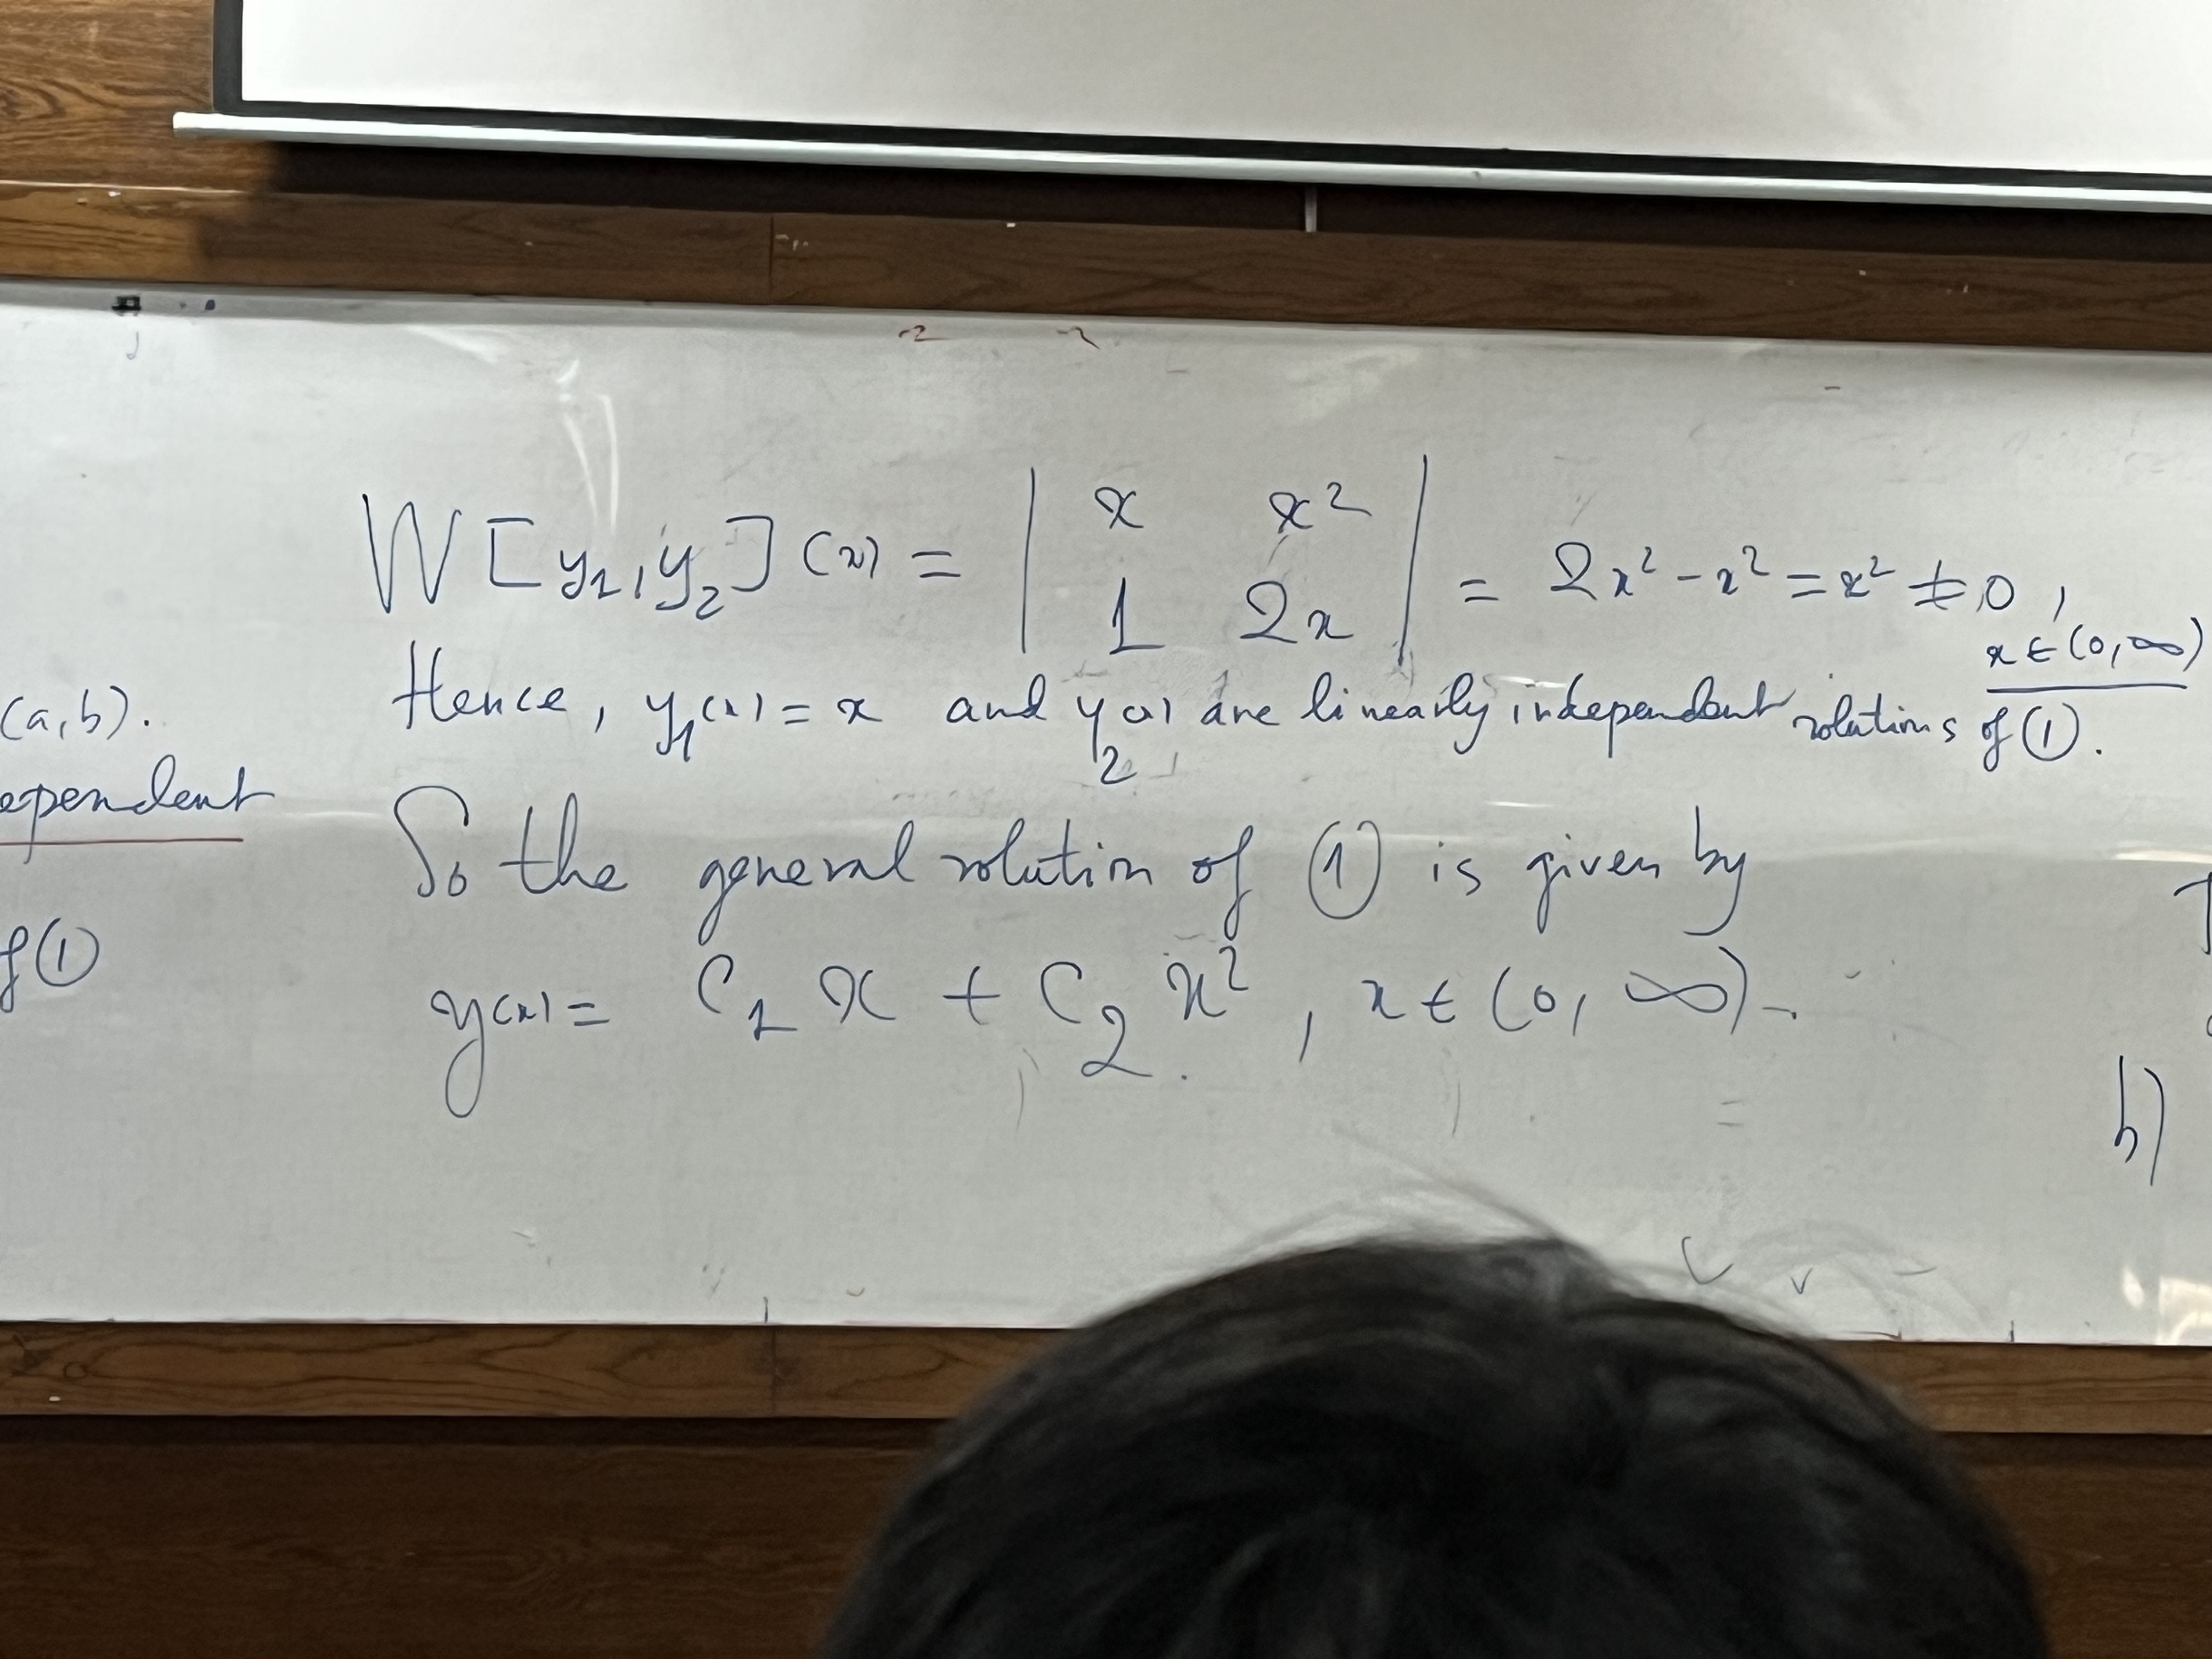 (a, b).
ependent
f ①
W[y₁, y₂](x) = | x x² ; 1 2x | = 2x² - x² = x² ≠ 0, x ∈ (0, ∞)
Hence, y₁(x) = x and y₂(x) are linearly independent solutions of ①.
So the general solution of ① is given by
y(x) = C₁ x + C₂ x², x ∈ (0, ∞).
b)